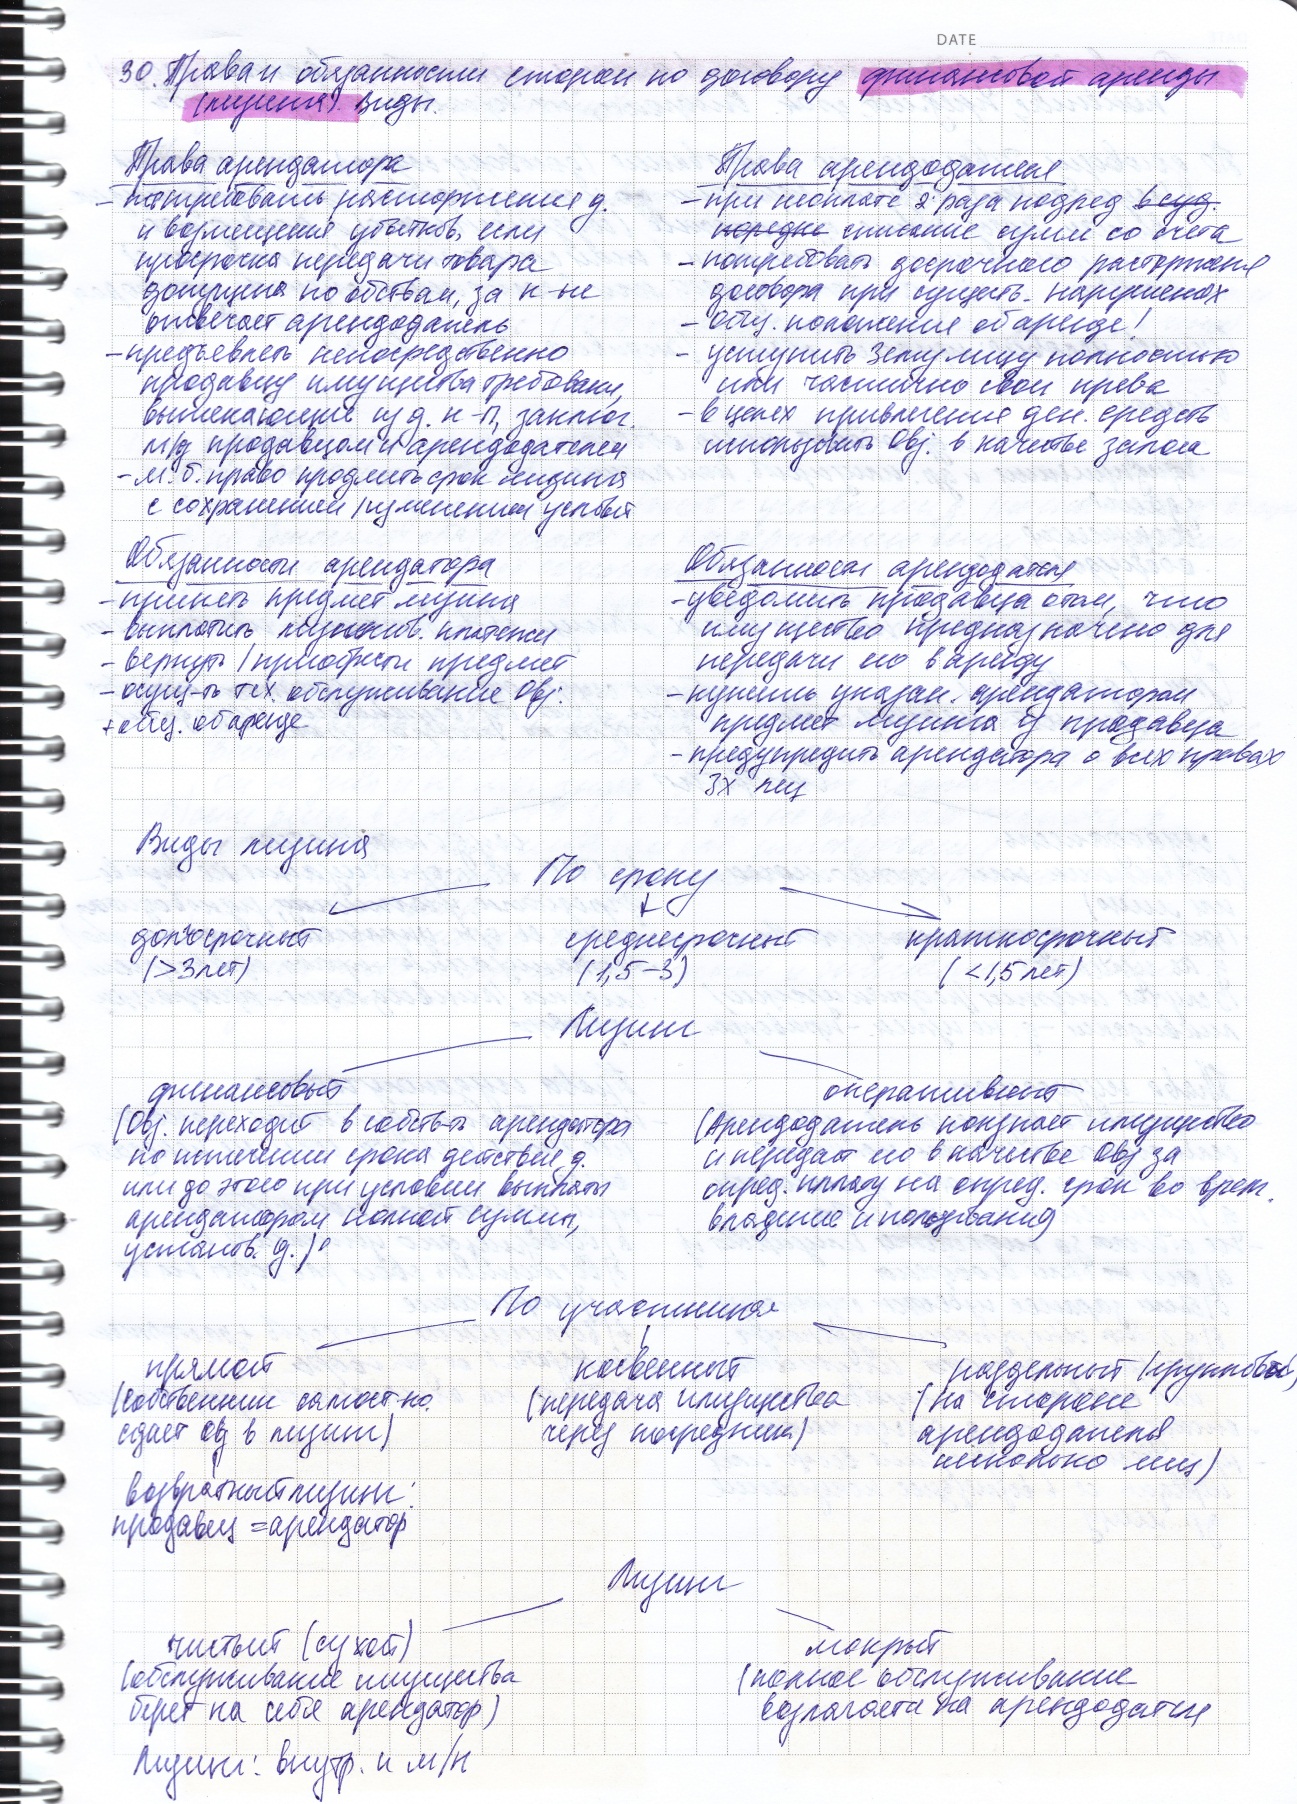 DATE
30. Права и обязанности сторон по договору финансовой аренды
(лизинга). Виды.
Права арендатора
- потребовать расторжения д.
и возмещения убытков, если
просрочка передачи товара
допущена по обст-вам, за к-ые
отвечает арендодатель
- предъявлять непосредственно
продавцу имущества требования,
вытекающие из д. к-п, заключ.
м/д продавцом и арендодателем
- м.б. право продлить срок лизинга
с сохранением/изменением условий
Права арендодателя
- при неоплате 2 раза подряд в суд.
порядке списание сумм со счета
- потребовать досрочного расторжения
договора при существ. нарушениях
- общ. положения об аренде!
- уступить 3ему лицу полностью
или частично свои права
- в целях привлечения ден. средств
использовать Obj. в качестве залога
Обязанности арендатора
- принять предмет лизинга
- выплатить лизингов. платежи
- вернуть/приобрести предмет
- осущ-ть тех. обслуживание Obj.
+ общ. об аренде
Обязанности арендодателя
- уведомить продавца о том, что
имущество предназначено для
передачи его в аренду
- купить указан. арендатором
предмет лизинга у продавца
- предупредить арендатора о всех правах
3х лиц
Виды лизинга
По сроку
долгосрочный
(>3 лет)
среднесрочный
(1,5-3)
краткосрочный
(<1,5 лет)
Лизинг
финансовый
(Obj. переходит в собств-ть арендатора
по истечении срока действия д.
или до этого при условии выплаты
арендатором полной суммы,
установ. д.)
оперативный
(Арендодатель покупает имущество
и передает его в качестве Obj за
опред. плату на опред. срок во врем.
владение и пользование)
По участникам
прямой
(собственник самост-но
сдает Obj в лизинг)
косвенный
(передача имущества
через посредника)
раздельный (групповой)
(на стороне
арендодателя
несколько лиц)
возвратный лизинг:
продавец = арендатор
Лизинг
чистый (сухой)
(обслуживание имущества
берет на себя арендатор)
мокрый
(полное обслуживание
возлагается на арендодателя
Лизинг: внутр. и м/н